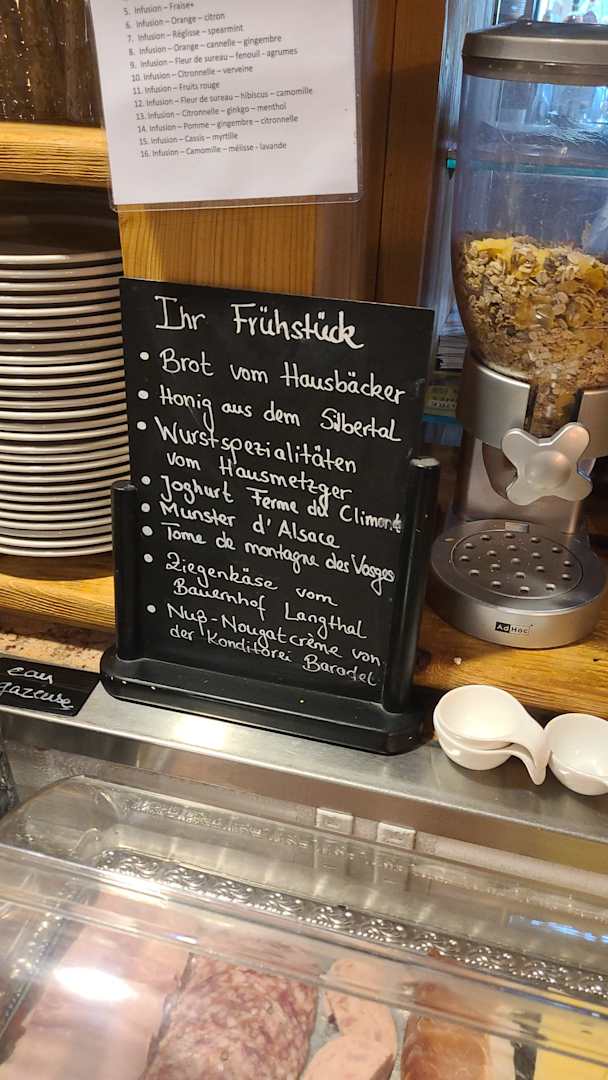 5. Infusion – Fraise+
6. Infusion – Orange – citron
7. Infusion – Réglisse – spearmint
8. Infusion – Orange – cannelle – gingembre
9. Infusion – Fleur de sureau – fenouil - agrumes
10. Infusion – Citronnelle – verveine
11. Infusion – Fruits rouge
12. Infusion – Fleur de sureau – hibiscus – camomille
13. Infusion – Citronnelle – ginkgo – menthol
14. Infusion – Pomme – gingembre – citronnelle
15. Infusion – Cassis – myrtille
16. Infusion – Camomille – mélisse - lavande
Ihr Frühstück
• Brot vom Hausbäcker
• Honig aus dem Silbertal
• Wurstspezialitäten
vom Hausmetzger
• Joghurt Ferme du Climont
• Munster d'Alsace
• Tome de montagne des Vosges
• Ziegenkäse vom
Bauernhof Langthal
• Nuß-Nougatcrème von
der Konditorei Baradel
AdHoc
eau
gazeuse